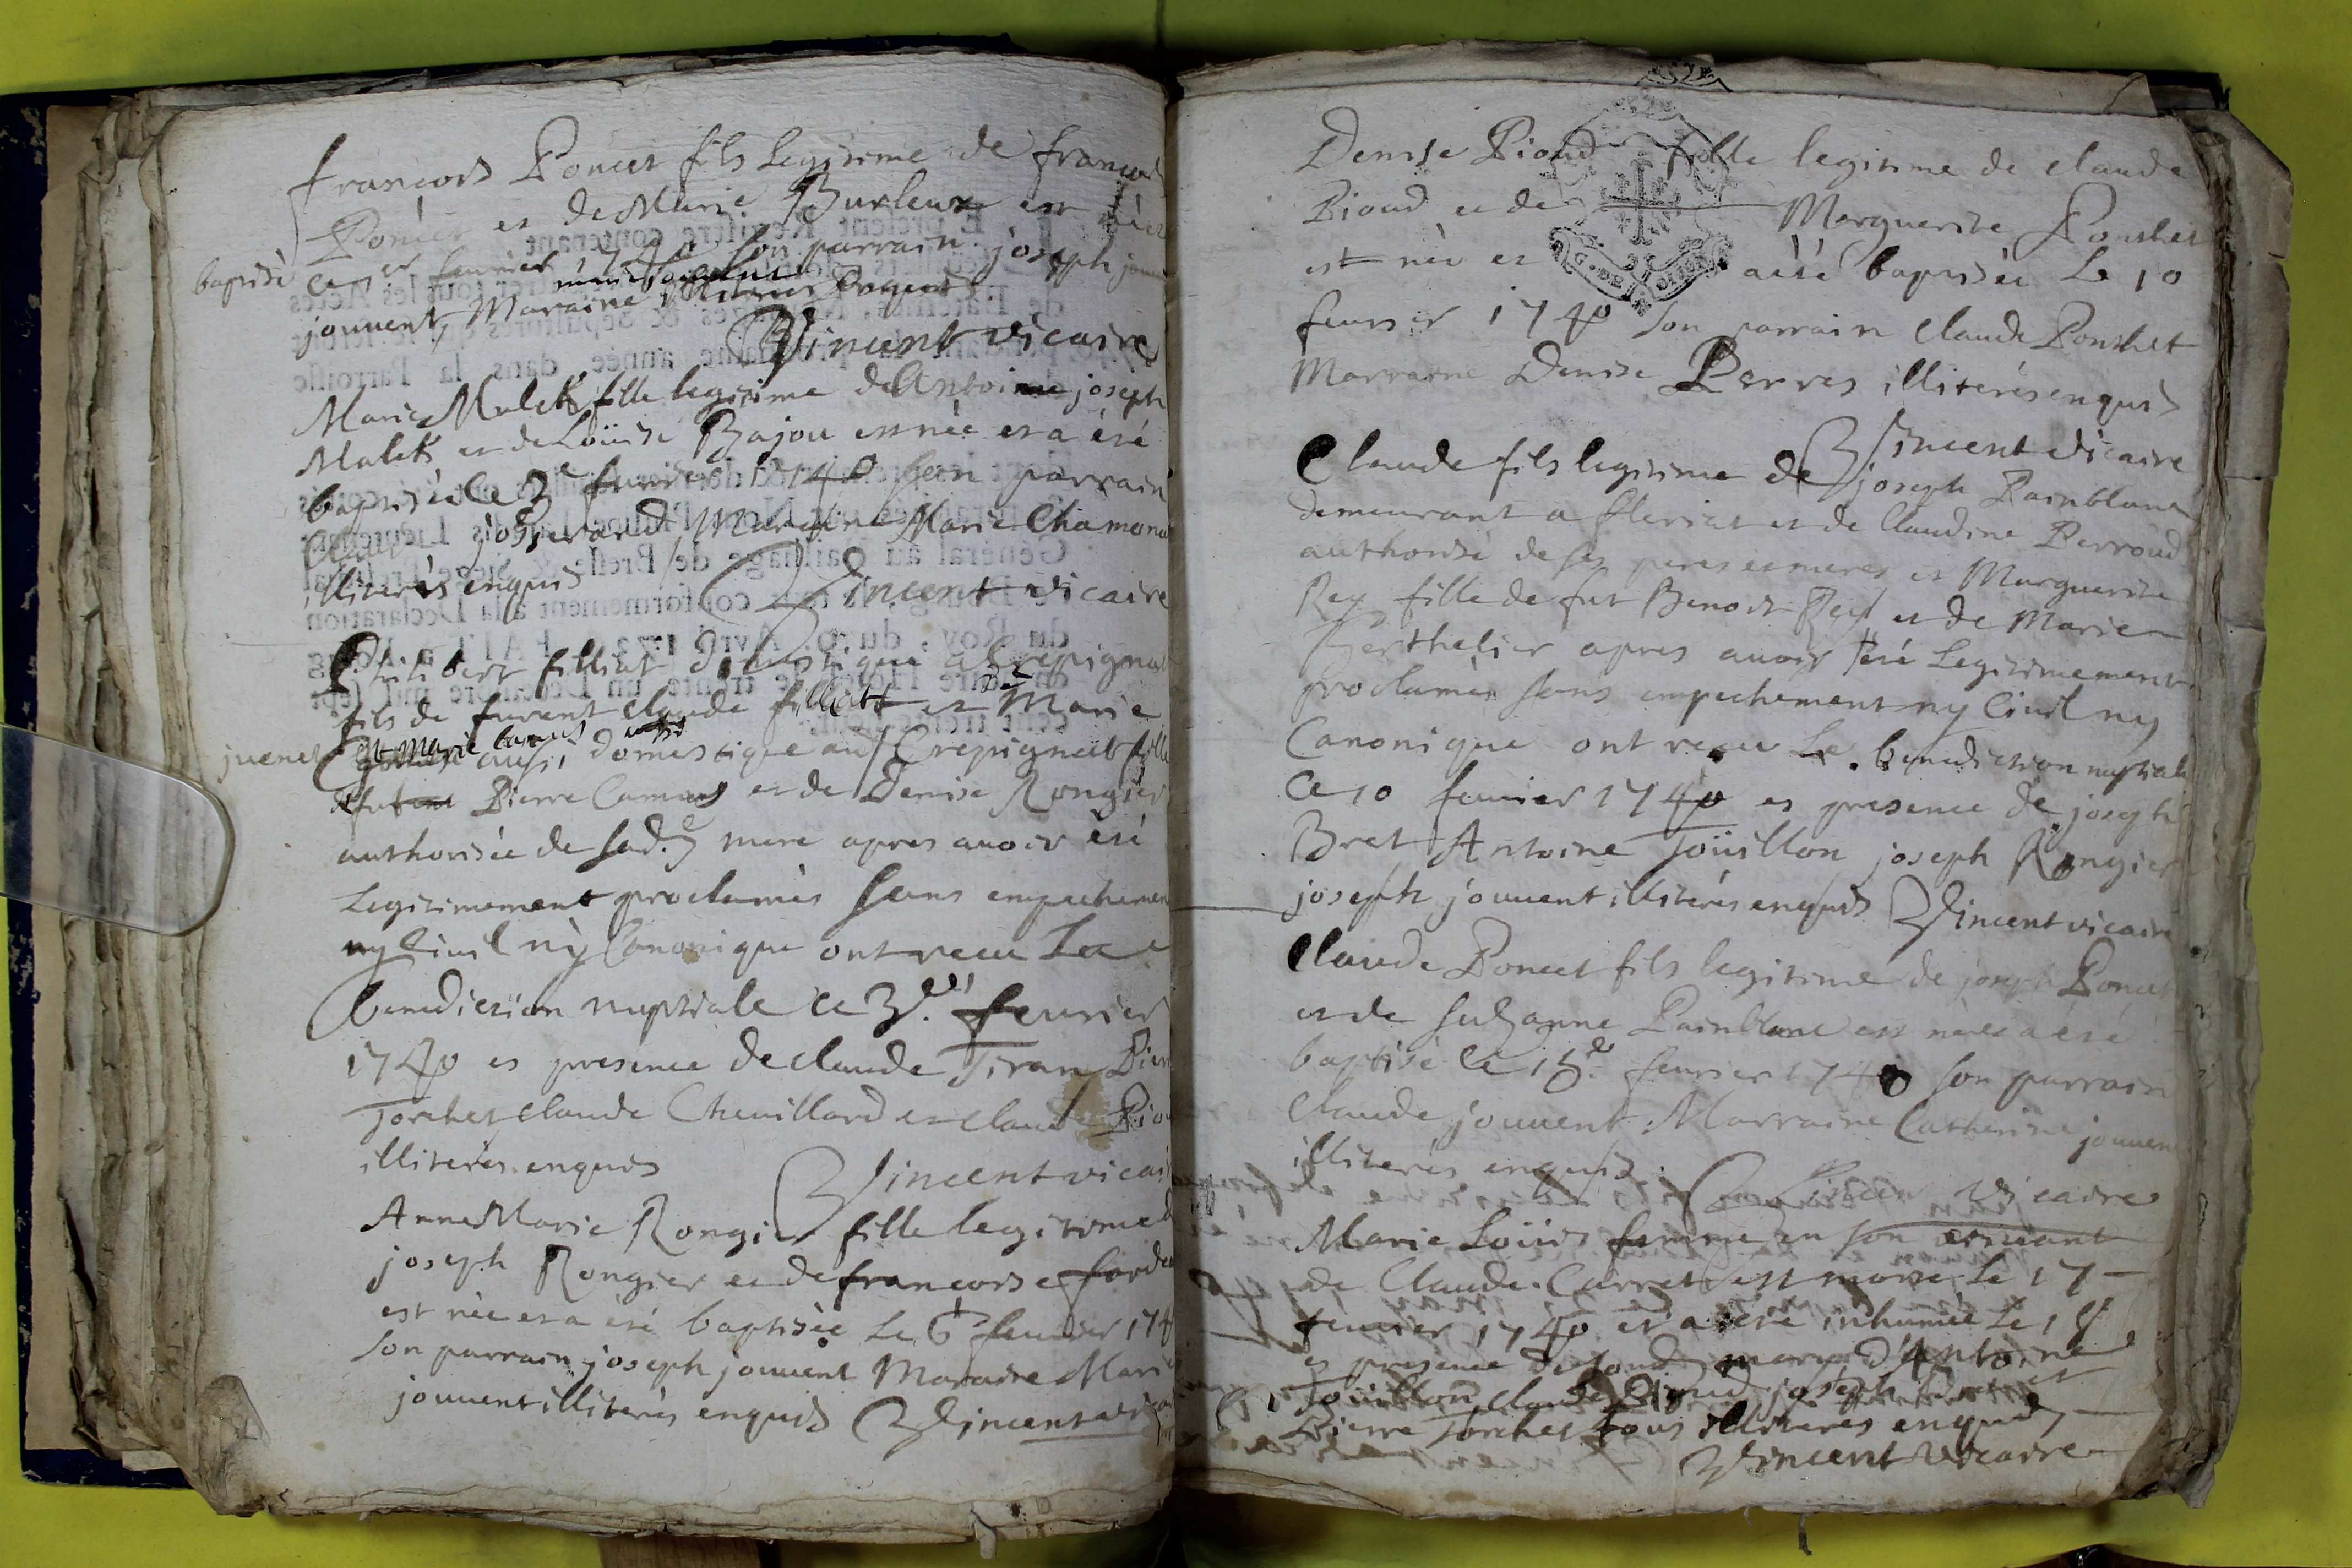 françois Poncet fils legitime de françois
Poncet et de Marie Burleux est
baptisé ce 1er feurier 1740 son parrain joseph
jouuent Marraine
Vincent vicaire
Marie Malek fille legitime de Antoine joseph
Malek et de Loüise Bajou est née et a ésé
baptisée le 3e feurier 1740 son parrain
josserand Maraine Marie Chamona
illiterés enquis Vincent vicaire
Philibert filliat domestique a Crepignat
fils de furent Claude filliatt et de Marie
juenet et Marie Camus aussi domestique au Crepignat fille
Pierre Camus et de Denise Rongier
authorisée de sad. mere apres auoir ésé
Legitimement proclamés sans empechemen
ny Ciuil ny Canonique ont receu La
Benediction nuptiale ce 3e. feurier
1740 es presence de claude Tiran Pier
Torchet claude Cheuillard et claude Pio
illiterés enquis Vincent vicai
Anne Marie Rongier fille legitime d
joseph Rongier et de francoise
est née et a ésé baptisée Le 6e feurier 174
son parrain joseph jouuent Maraine Mari
jouuent illiterés enquis Vincent
Denise Pioud fille legitime de claude
Pioud et de Marguerite Ponthet
est née et a ésé baptisée Le 10
feurier 1740 son parrain claude Ponthet
Marraine Denise Perres illiterés enquis
Vincent vicaire
Claude fils legitime de joseph Painblanc
demeurant a fleriat et de Claudine Perroud
authorisé de ses peres et meres et Marguerite
Rey fille de fut Benoit Rey et de Marie
Berthelier apres auoir ésé Legitimement
proclamés sans empechement ny Ciuil ny
Canonique ont receu La benediction nuptiale
ce 10 feurier 1740 es presence de joseph
Bret Antoine Joüillon joseph Rongier
joseph jouuent illiterés enquis Vincent vicaire
Claude Poncet fils legitime de joseph Poncet
et de Suzanne Painblanc est né et a ésé
baptisé le feurier 1740 son parrain
Claude jouuent Marraine Catherine jouuen
illiterés enquis Vincent vicaire
Marie Loüis femme en son uiuant
de Claude Curret est morte Le 17
feurier 1740 et a ésé inhumée Le 18
es presence de soud mary d'Antoine
Joüillon claude Pioud joseph et
Pierre Torchet tous illiterés enquis
Vincent vicaire